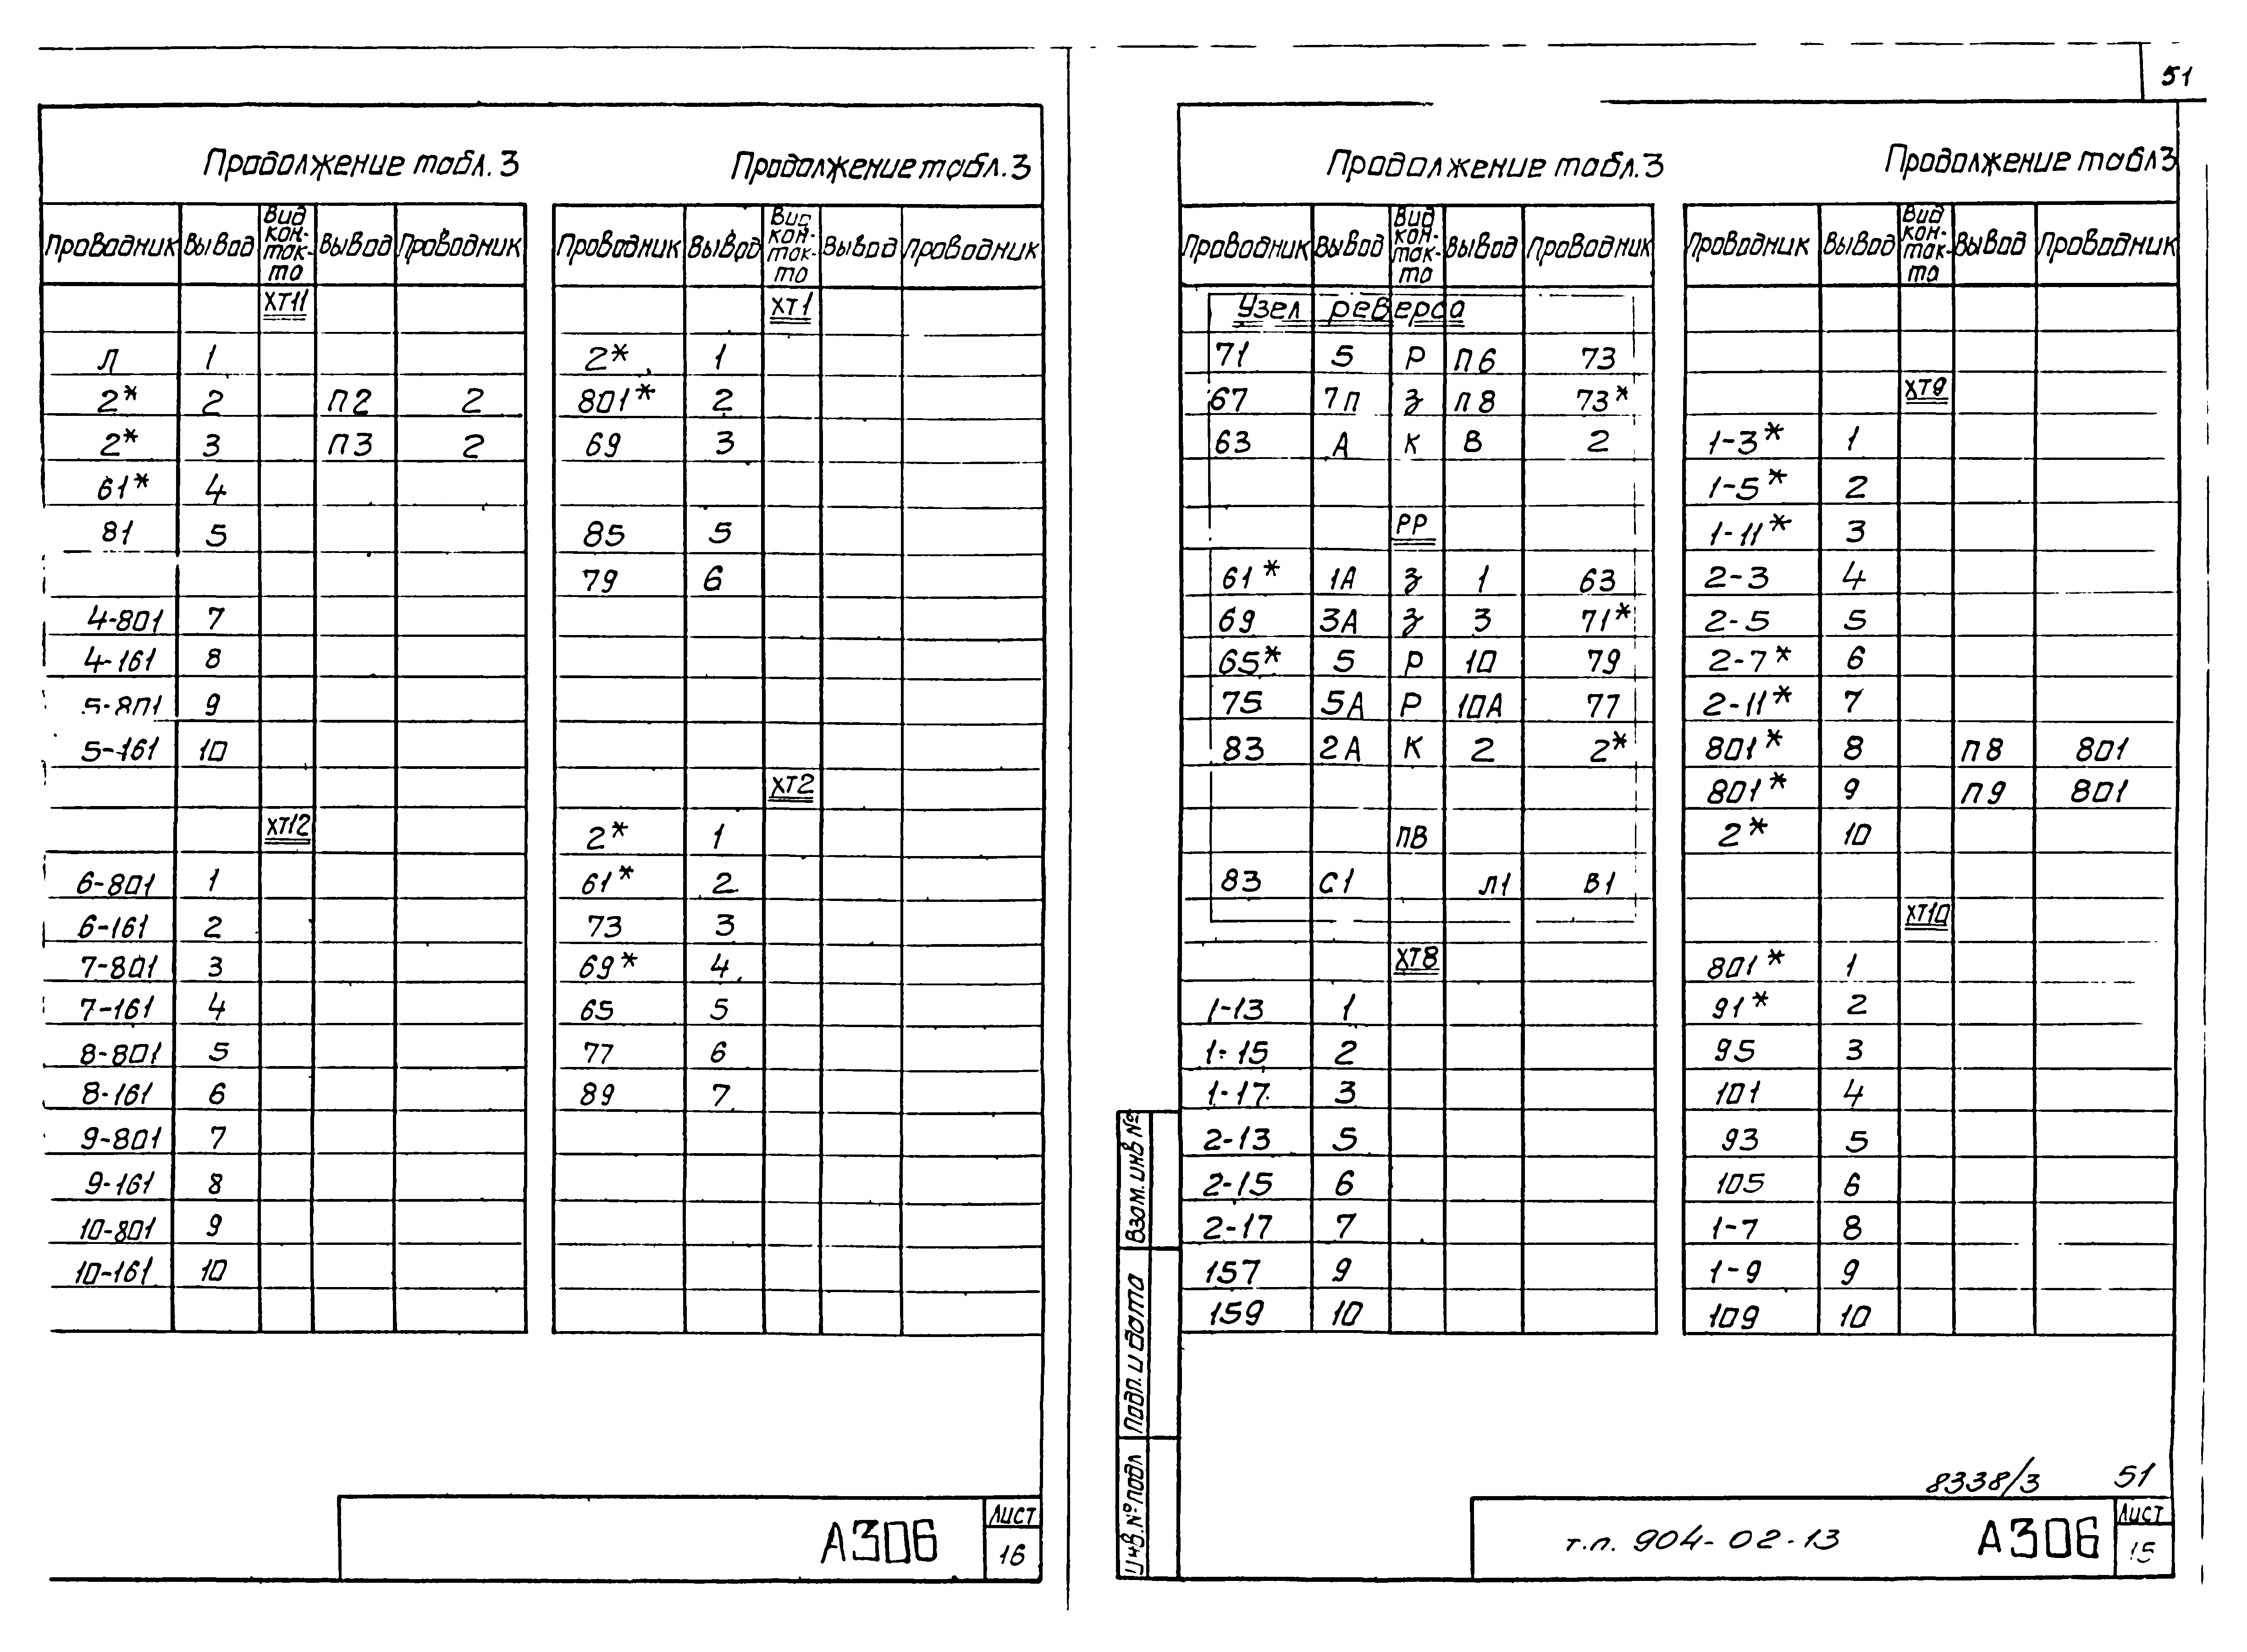 51
Продолжение табл. 3
Проводник Вывод Вид кон-так-та Вывод Проводник
ХТ11
Л 1
2* 2 П2 2
2* 3 П3 2
61* 4
81 5
4-801 7
4-161 8
5-801 9
5-161 10
ХТ12
6-801 1
6-161 2
7-801 3
7-161 4
8-801 5
8-161 6
9-801 7
9-161 8
10-801 9
10-161 10
Продолжение табл. 3
Проводник Вывод Вид кон-так-та Вывод Проводник
ХТ1
2* 1
801* 2
69 3
85 5
79 6
ХТ2
2* 1
61* 2
73 3
69* 4
65 5
77 6
89 7
А306
Лист
16
Продолжение табл. 3
Проводник Вывод Вид кон-так-та Вывод Проводник
Узел реверса
71 5 Р П6 73
67 7П З П8 73*
63 А К В 2
РР
61* 1А З 1 63
69 3А З 3 71*
65* 5 Р 10 79
75 5А Р 10А 77
83 2А К 2 2*
ПВ
83 С1 Л1 В1
ХТ8
1-13 1
1-15 2
1-17 3
2-13 5
2-15 6
2-17 7
157 9
159 10
Продолжение табл 3
Проводник Вывод Вид кон-так-та Вывод Проводник
ХТ9
1-3* 1
1-5* 2
1-11* 3
2-3 4
2-5 5
2-7* 6
2-11* 7
801* 8 П8 801
801* 9 П9 801
2* 10
ХТ10
801* 1
91* 2
95 3
101 4
93 5
105 6
1-7 8
1-9 9
109 10
Взам. инв №
Подп. и дата
Инв. № подл
8338/3 51
т.п. 904-02-13
А306
Лист
15